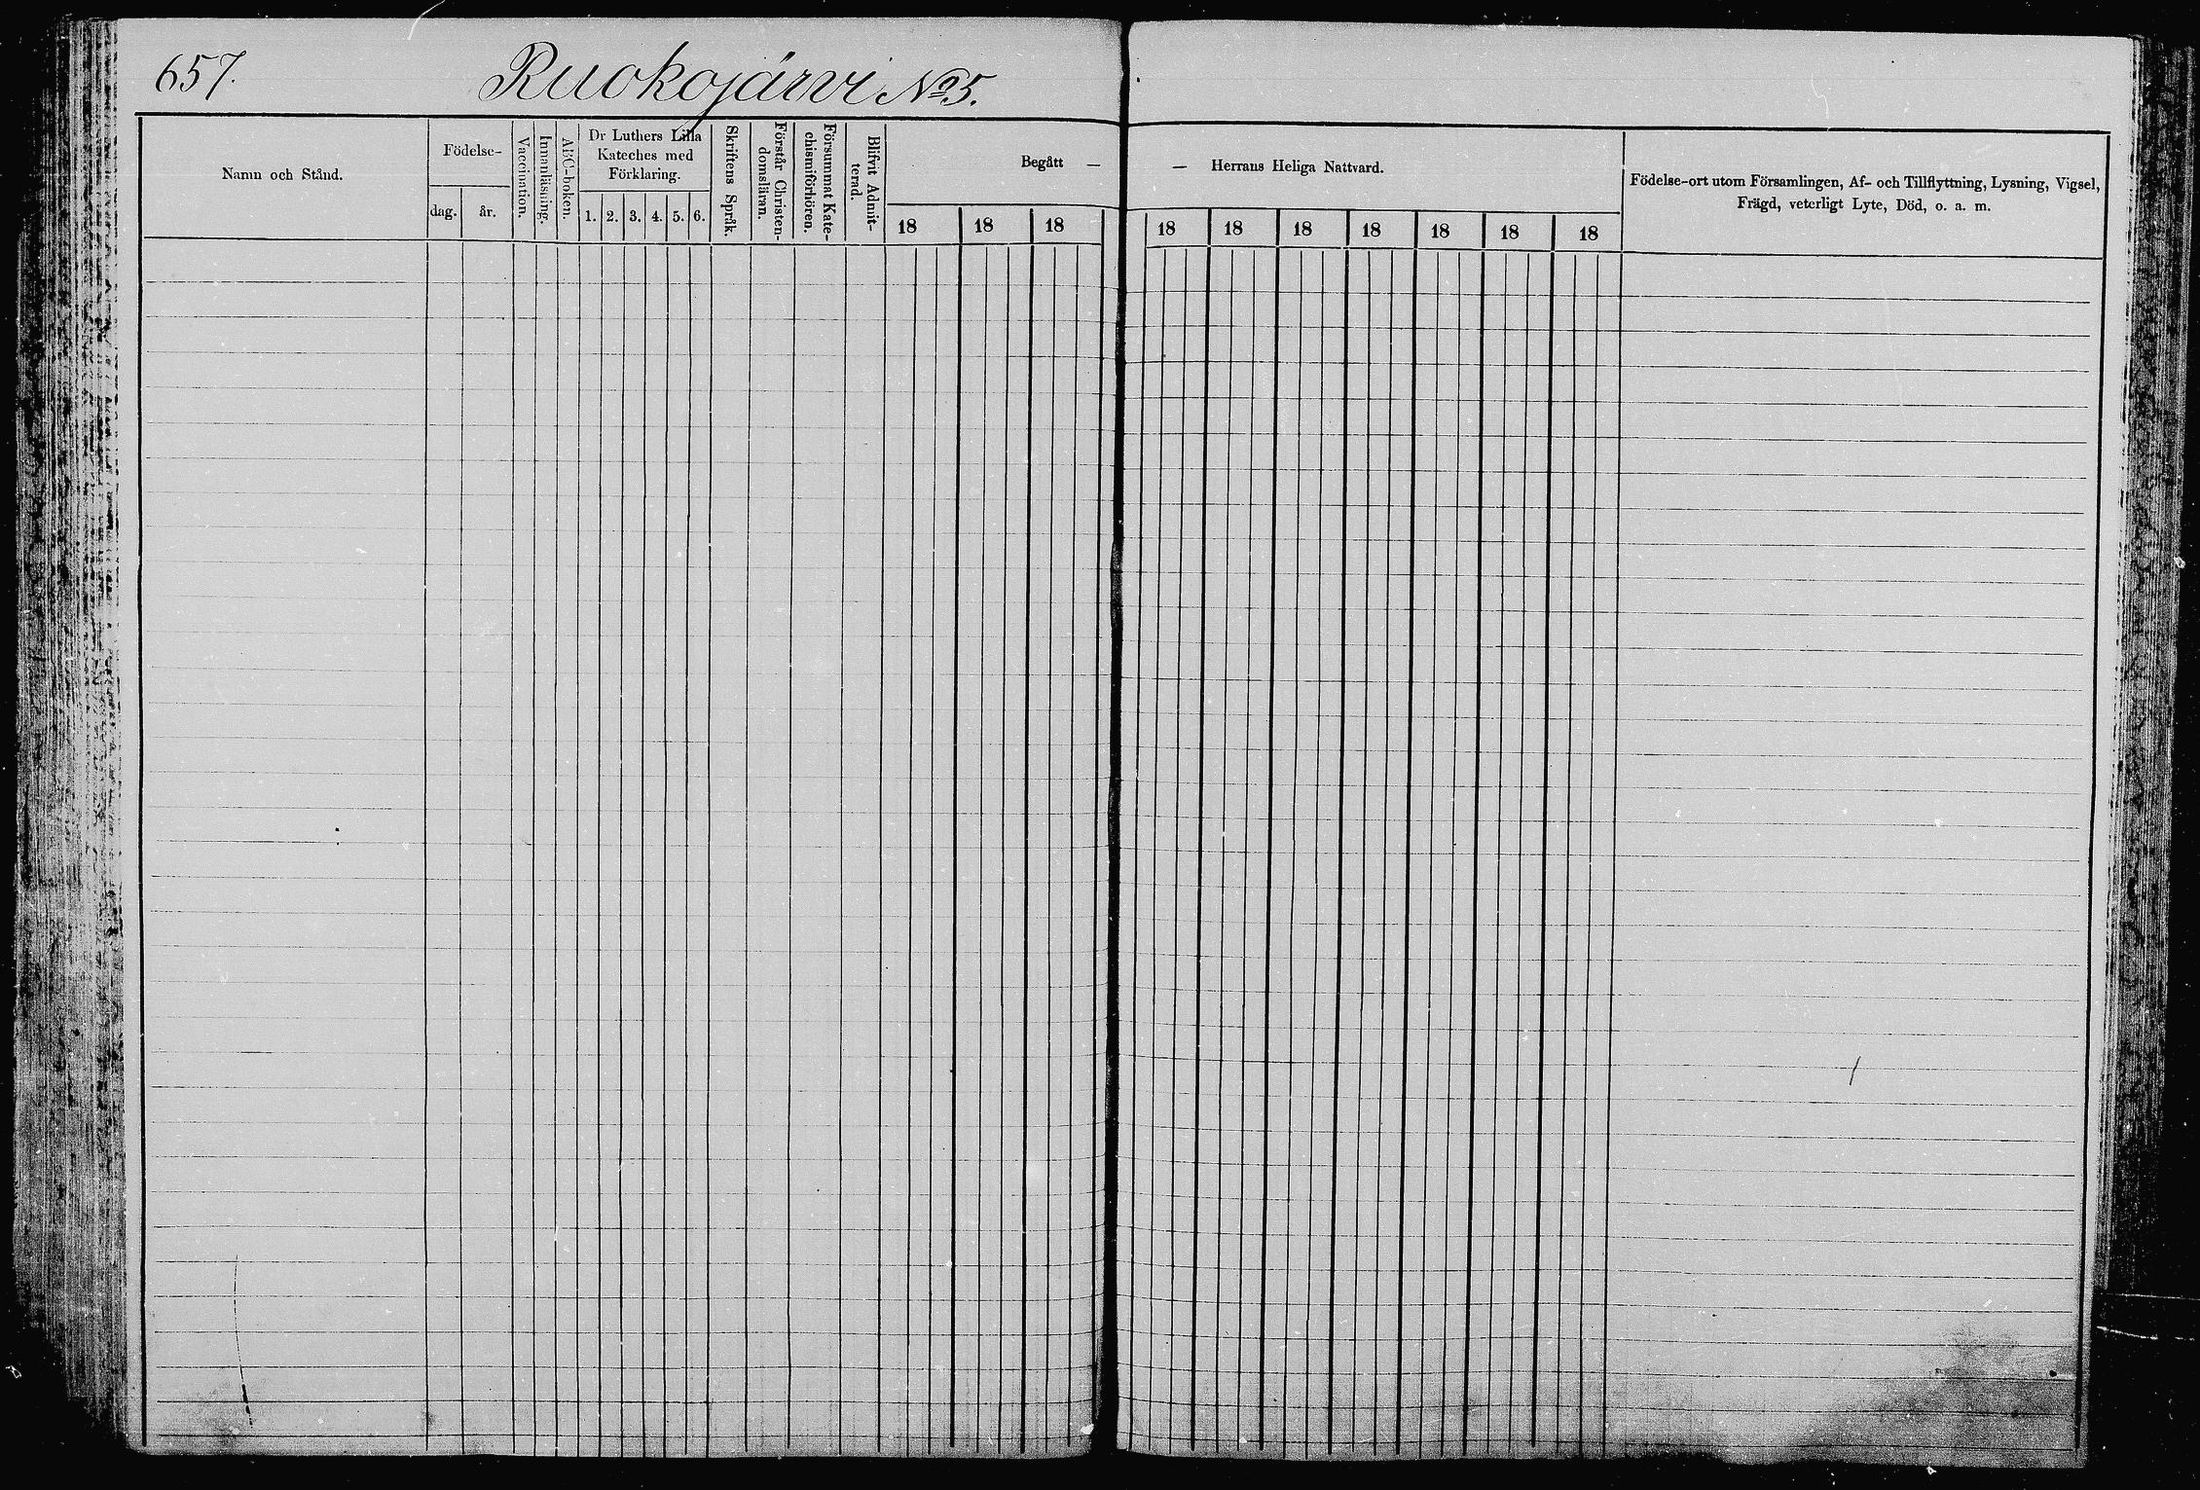 657.
Ruokojärvi No 5.
Namn och Stånd.
Födelse-
dag. år.
Vaccination.
Innanläsning.
ABC-boken.
Dr Luthers Lilla
Kateches med
Förklaring.
1. 2. 3. 4. 5. 6.
Skriftens Språk.
Förstår Christen-
domsläran.
Försummat Kate-
chismiförhören.
Blifvit Admit-
terad.
Begått —
18 18 18
— Herrans Heliga Nattvard.
18 18 18 18 18 18 18
Födelse-ort utom Församlingen, Af- och Tillflyttning, Lysning, Vigsel,
Frägd, veterligt Lyte, Död, o. a. m.